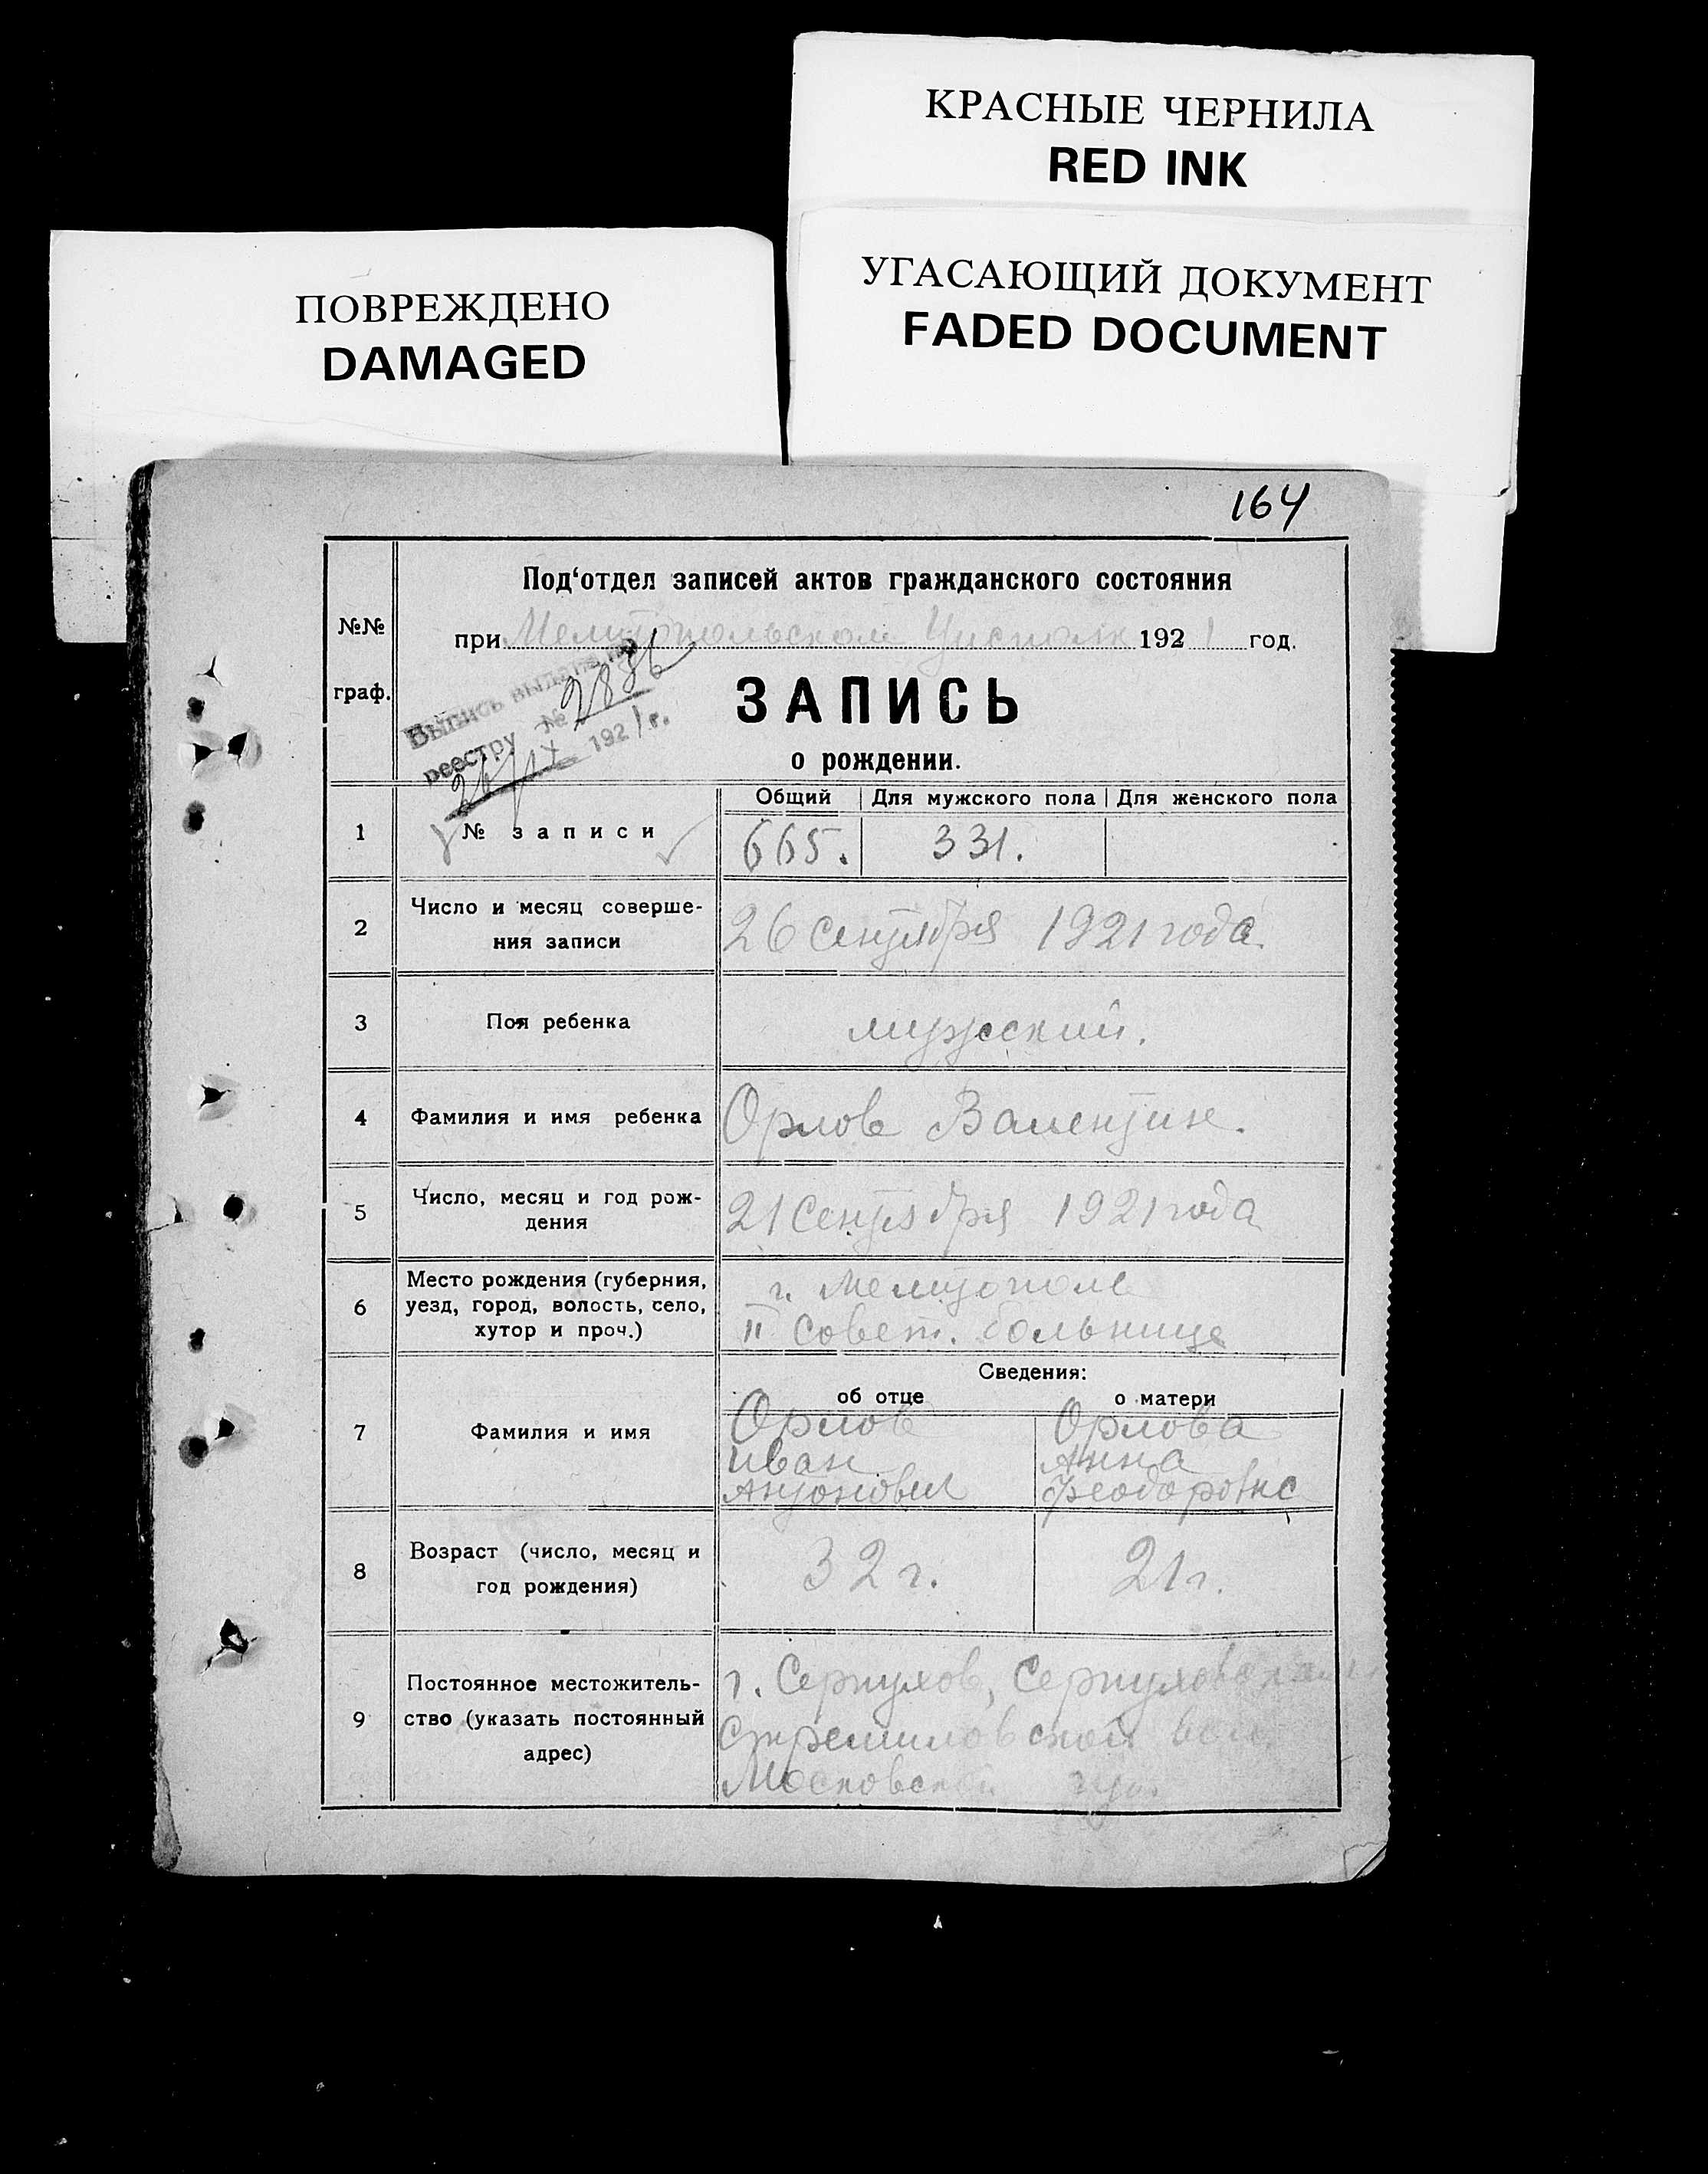 КРАСНЫЕ ЧЕРНИЛА
RED INK
УГАСАЮЩИЙ ДОКУМЕНТ
FADED DOCUMENT
ПОВРЕЖДЕНО
DAMAGED
164
Под‘отдел записей актов гражданского состояния
№№
граф.
при Мелитопольском Уисполк 1921 год.
Выпись выдана по
реестру № 2836
26/IX 1921 г.
ЗАПИСЬ
о рождении.
Общий Для мужского пола Для женского пола
1 № записи 665. 331.
2 Число и месяц соверше-
ния записи
26 сентября 1921 года.
3 Пол ребенка мужский.
4 Фамилия и имя ребенка Орлов Валентин.
5 Число, месяц и год рож-
дения
21 сентября 1921 года
6 Место рождения (губерния,
уезд, город, волость, село,
хутор и проч.)
г. Мелитополе
II Совет. больнице
Сведения:
об отце о матери
7 Фамилия и имя
Орлов
Иван
Антонович
Орлова
Анна
Феодоровна
8 Возраст (число, месяц и
год рождения)
32 г. 21 г.
9 Постоянное местожитель-
ство (указать постоянный
адрес)
г. Серпухов,
Стремиловской вол.
Московской губ.